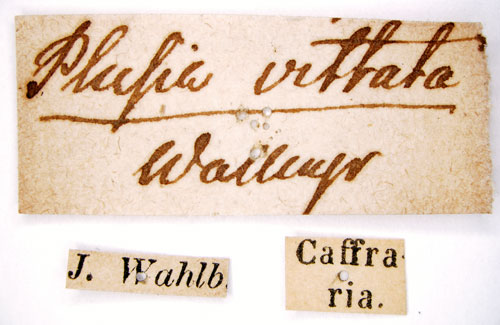 Plusia vittata
Wallengr
J. Wahlb.
Caffra-
ria.